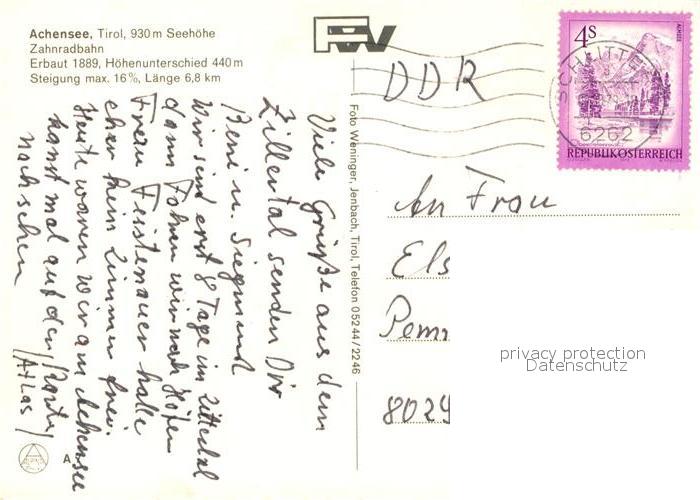 Achensee, Tirol, 930 m Seehöhe
Zahnradbahn
Erbaut 1889, Höhenunterschied 440 m
Steigung max. 16%, Länge 6,8 km
Viele Grüße aus dem
Zillertal senden Dir
Beni u. Siegmund
Wir sind erst 8 Tage im Zillertal
dann fahren wir nach Höfen
Frau Feistenauer hatte
eher kein Zimmer frei.
Heute waren wir am Achensee
kannst mal auf der Karte
nachsehen /Atlas/
Foto Weninger, Jenbach, Tirol, Telefon 05244/2246
FW
DDR
4S
ACHSEE
SCHLITTE
6262
REPUBLIK ÖSTERREICH
An Frau
Els
Pem
8029
privacy protection
Datenschutz
A